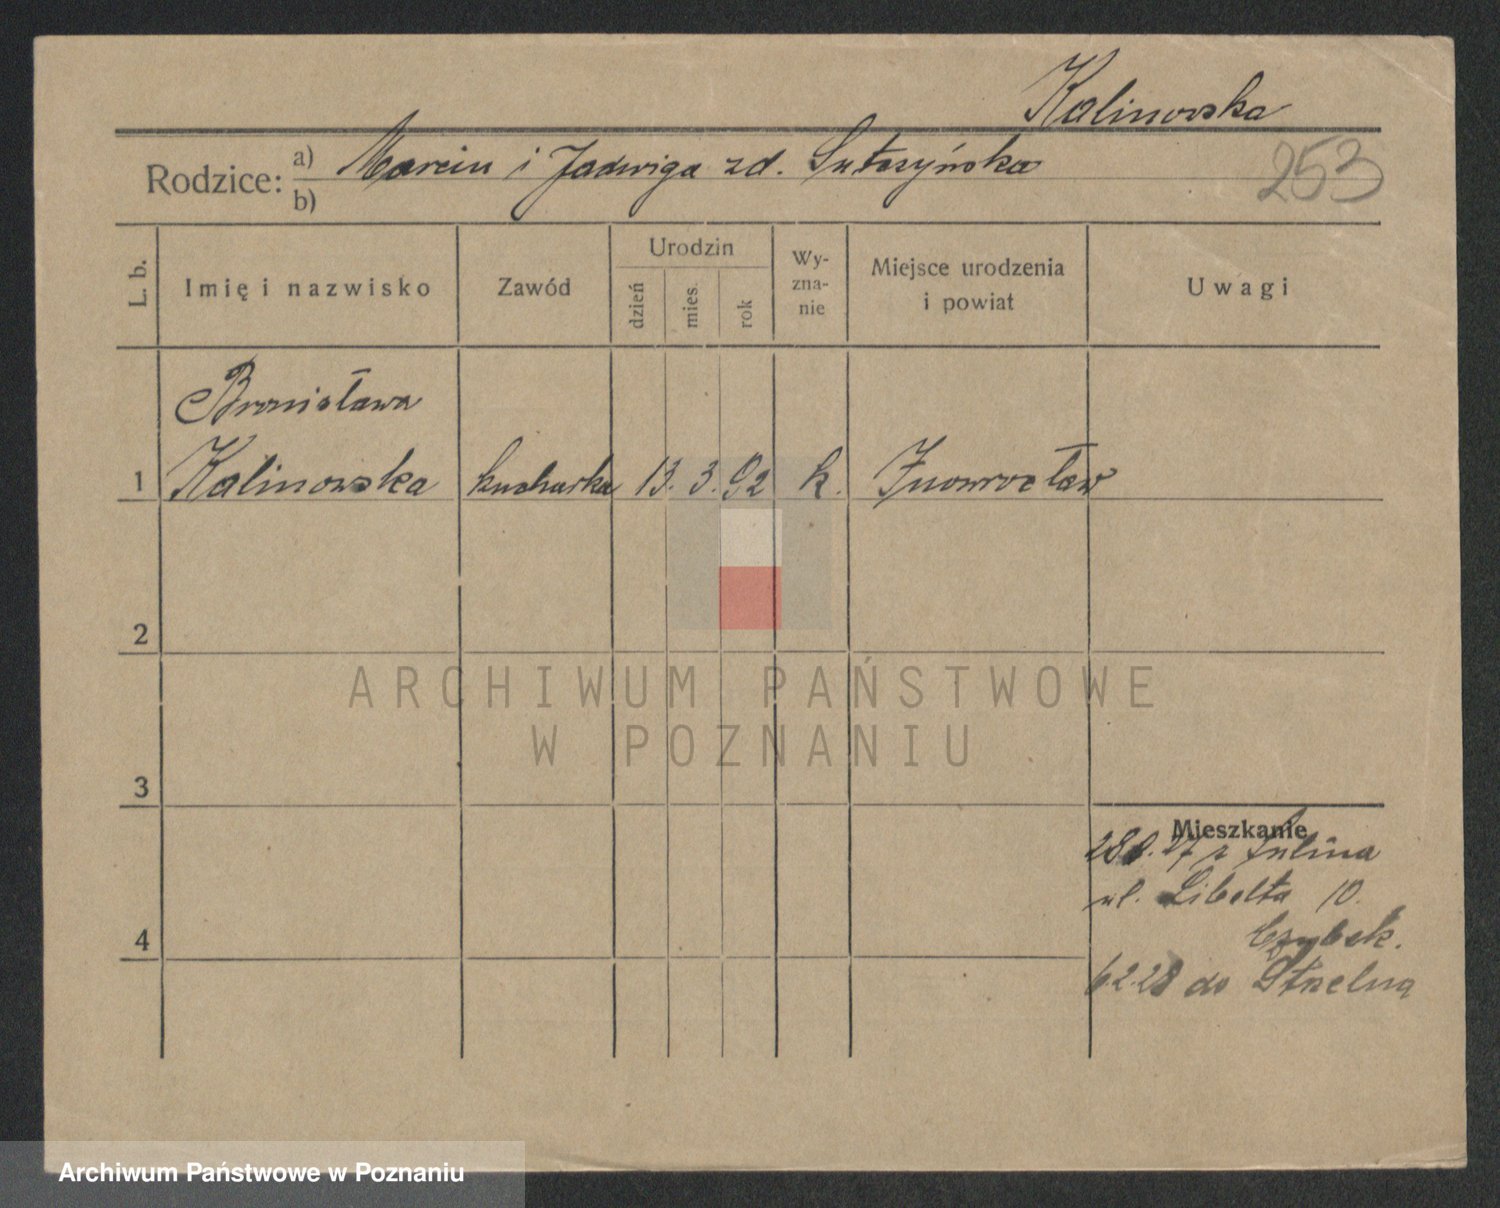 Kalinowska
Rodzice: a) Marcin i Jadwiga zd.
b)
253
L. b.
Imię i nazwisko
Zawód
Urodzin
dzień
mies.
rok
Wy-
zna-
nie
Miejsce urodzenia
i powiat
Uwagi
Bronisława
1 Kalinowska kucharka 13. 3. 92 k. Inowrocław
2
3
4
ARCHIWUM PAŃSTWOWE
W POZNANIU
Mieszkanie
27 z
ul. Libelta 10.
6.2.28 do Strzelna
Archiwum Państwowe w Poznaniu